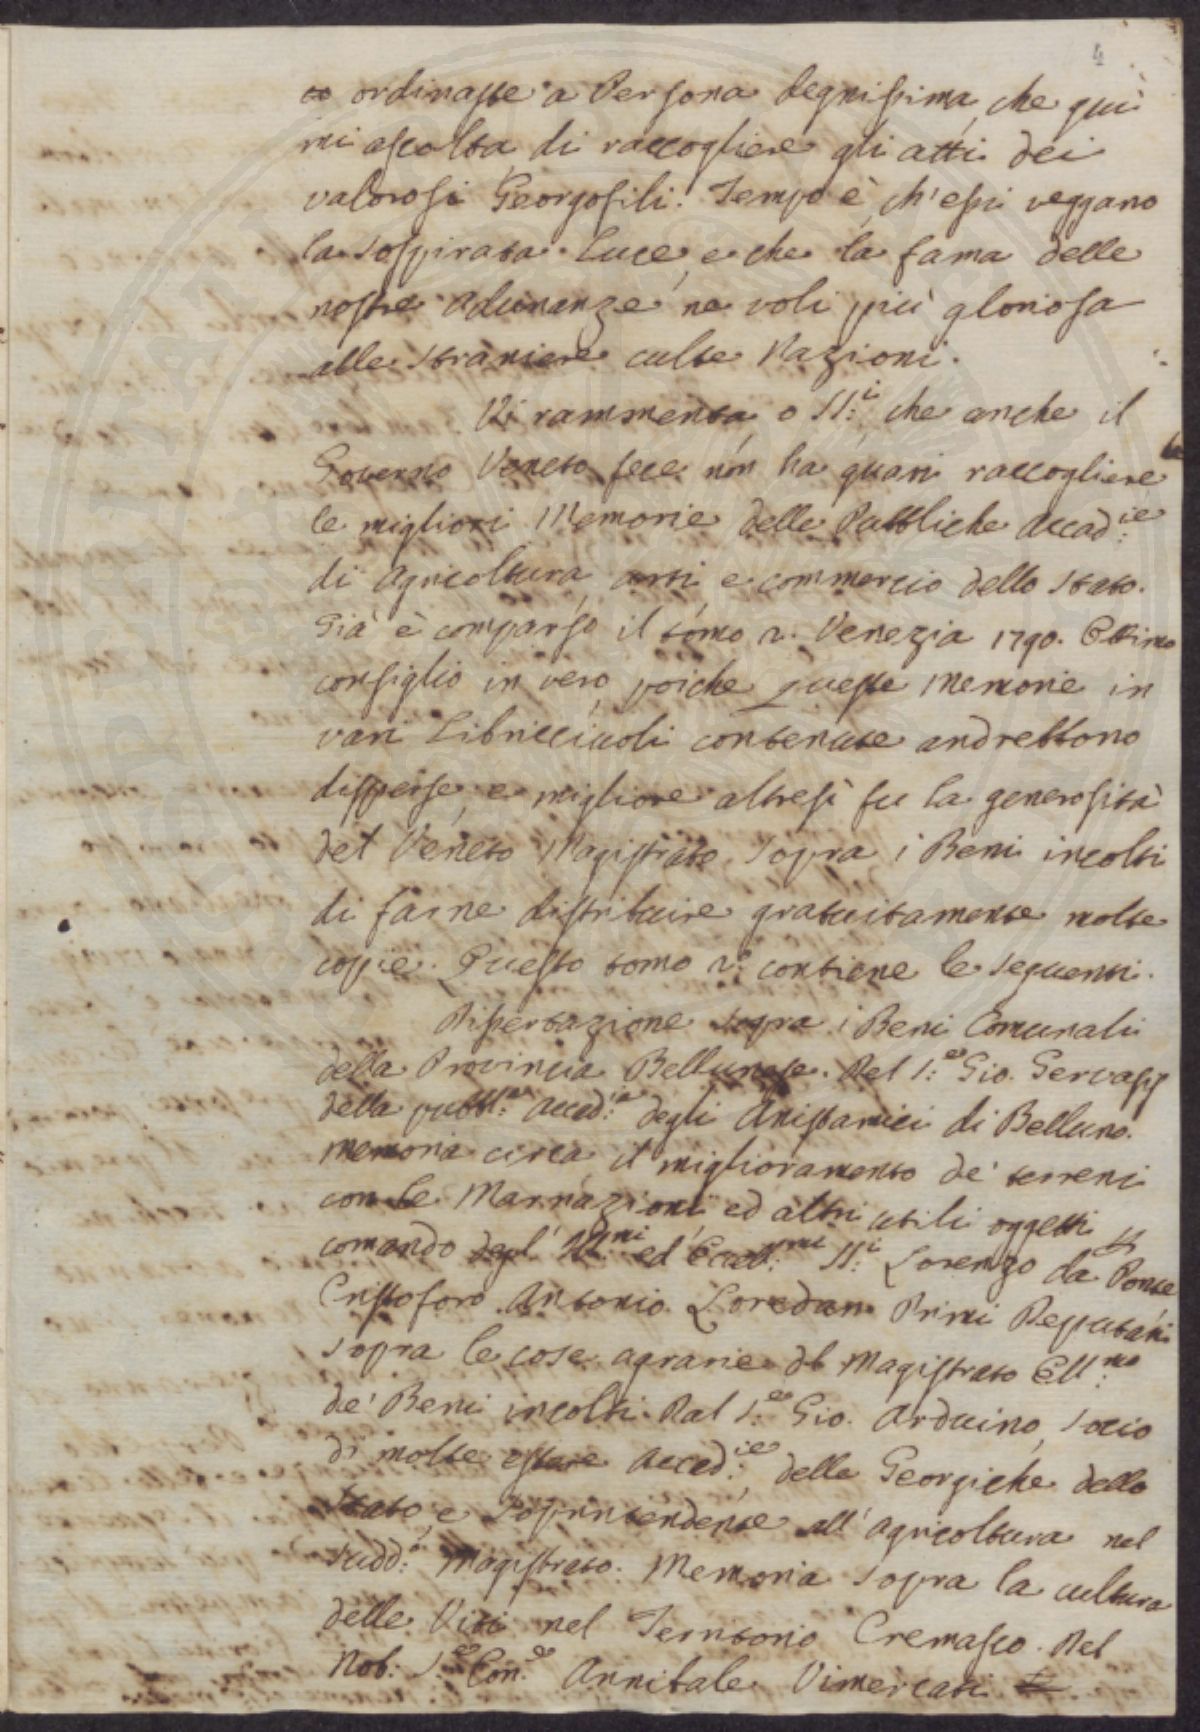 4
ordinaste a Persona degnissima, che quì
mi ascolta di raccogliere gli atti dei
valorosi Georgofili. Tempo è, ch'essi veggano
la sospirata Luce, e che la fama delle
nostre adunanze ne voli più gloriosa
alle straniere culte Nazioni.
Vi rammenta o SS:i che anche il
Governo Veneto fece non ha guari raccogliere
le migliori Memorie delle Pubbliche Accad:ie
di Agricoltura, arti, e commercio dello Stato.
Già è comparso il tomo 2. Venezia 1790. Ottimo
consiglio in vero, poiche queste memorie in
vari Libricciuoli contenute andrebbono
disperse, e migliore altresì fu la generosità
del Veneto Magistrato sopra i Beni incolti
di farne distribuire gratuitamente molte
copie. Questo tomo 2o contiene le seguenti.
Dissertazione sopra i Beni Comunali
della Provincia Bellunese. Del S:e Gio. Gervasis
della pubbl:a Accad:a degli Anistamici di Belluno.
Memoria circa il miglioramento de' terreni
con le Marnazioni ed altri utili oggetti
comando degl' Ill:mi ed Eccell:mi SS:i Lorenzo da Ponte
Cristoforo Antonio Loredan Primi Deputati
sopra le cose agrarie del Magistrato Ecc:mo
de' Beni incolti. Dal S:e Gio. Arduino, Socio
di molte estere Accad:ie, delle Georgiche dello
Stato, e Soprintendente all' agricoltura nel
sudd:o Magistrato. Memoria sopra la cultura
delle Viti nel Territorio Cremasco. Del
Nob: S:e Con:e Annibale Vimercati